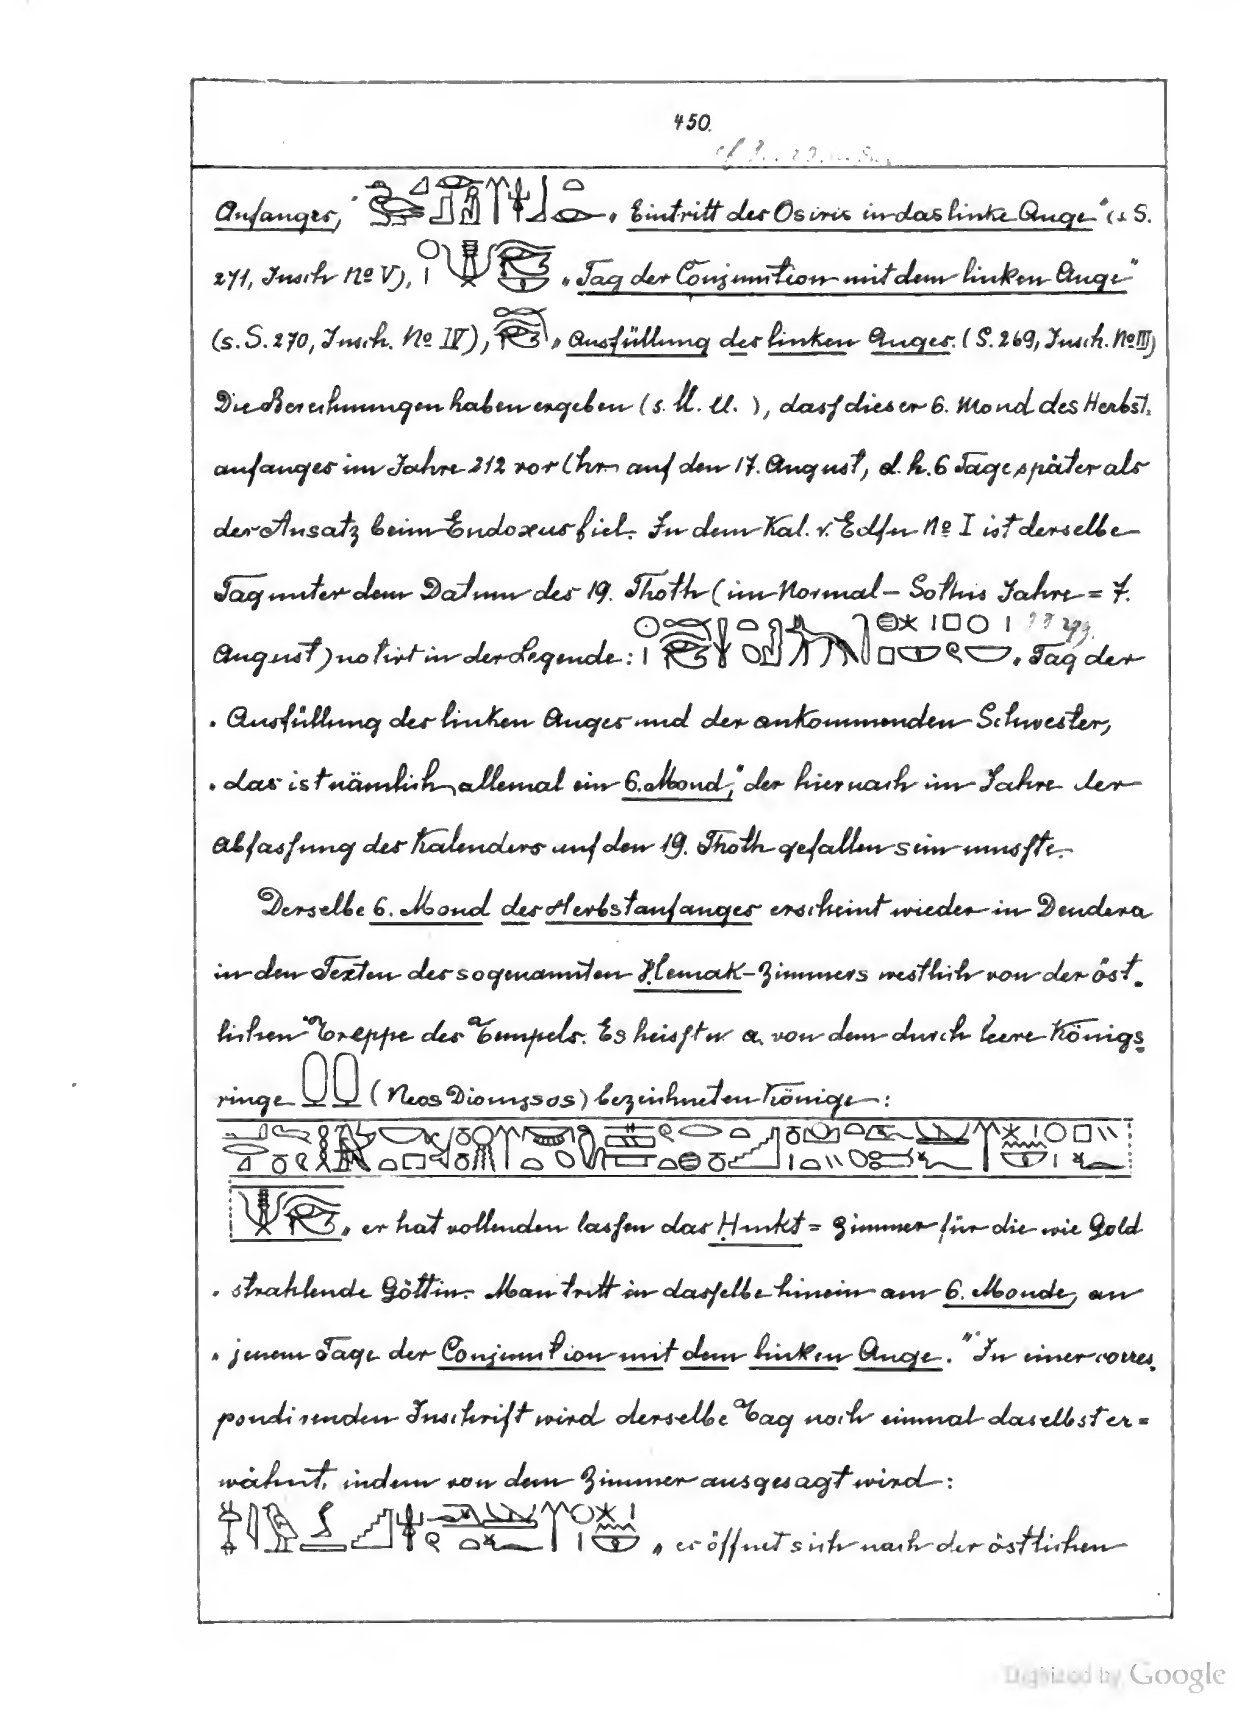 450.
Anfanges," „Eintritt des Osiris in das linke Auge" (s. S.
271, Insch No V), „Tag der Conjunction mit dem linken Auge"
(s. S. 270, Insch. No IV), „Ausfüllung des linken Auges. (S. 269, Insch. No III)
Die Berechnungen haben ergeben (s. U. U. ), dass dieser 6. Mond des Herbst-
anfanges im Jahre 212 vor Chr. auf den 17. August, d. h. 6 Tage später als
der Ansatz beim Eudoxus fiel. In dem Kal. v. Edfu No I ist derselbe
Tag unter dem Datum des 19. Thoth (im Normal-Sothis Jahre = 7.
August) notirt in der Legende: „Tag der
„Ausfüllung des linken Auges und der ankommenden Schwester,
„das ist nämlich allemal ein 6. Mond," der hiernach im Jahre der
Abfassung des Kalenders auf den 19. Thoth gefallen sein musste.
Derselbe 6. Mond des Herbstanfanges erscheint wieder in Dendera
in den Texten des sogenannten Hemak-Zimmers westlich von der öst-
lichen Treppe des Tempels. Es heisst u. a. von dem durch leere Königs
ringe (Neos Dionysos) bezeichneten Könige:
„er hat vollenden lassen das Hunkt=Zimmer für die wie Gold
„strahlende Göttin. Man tritt in dasselbe hinein am 6. Monde, an
„jenem Tage der Conjunction mit dem linken Auge." In einer corres
pondirenden Inschrift wird derselbe Tag noch einmal daselbst er=
wähnt, indem von dem Zimmer ausgesagt wird:
„es öffnet sich nach der östlichen
Digitized by Google